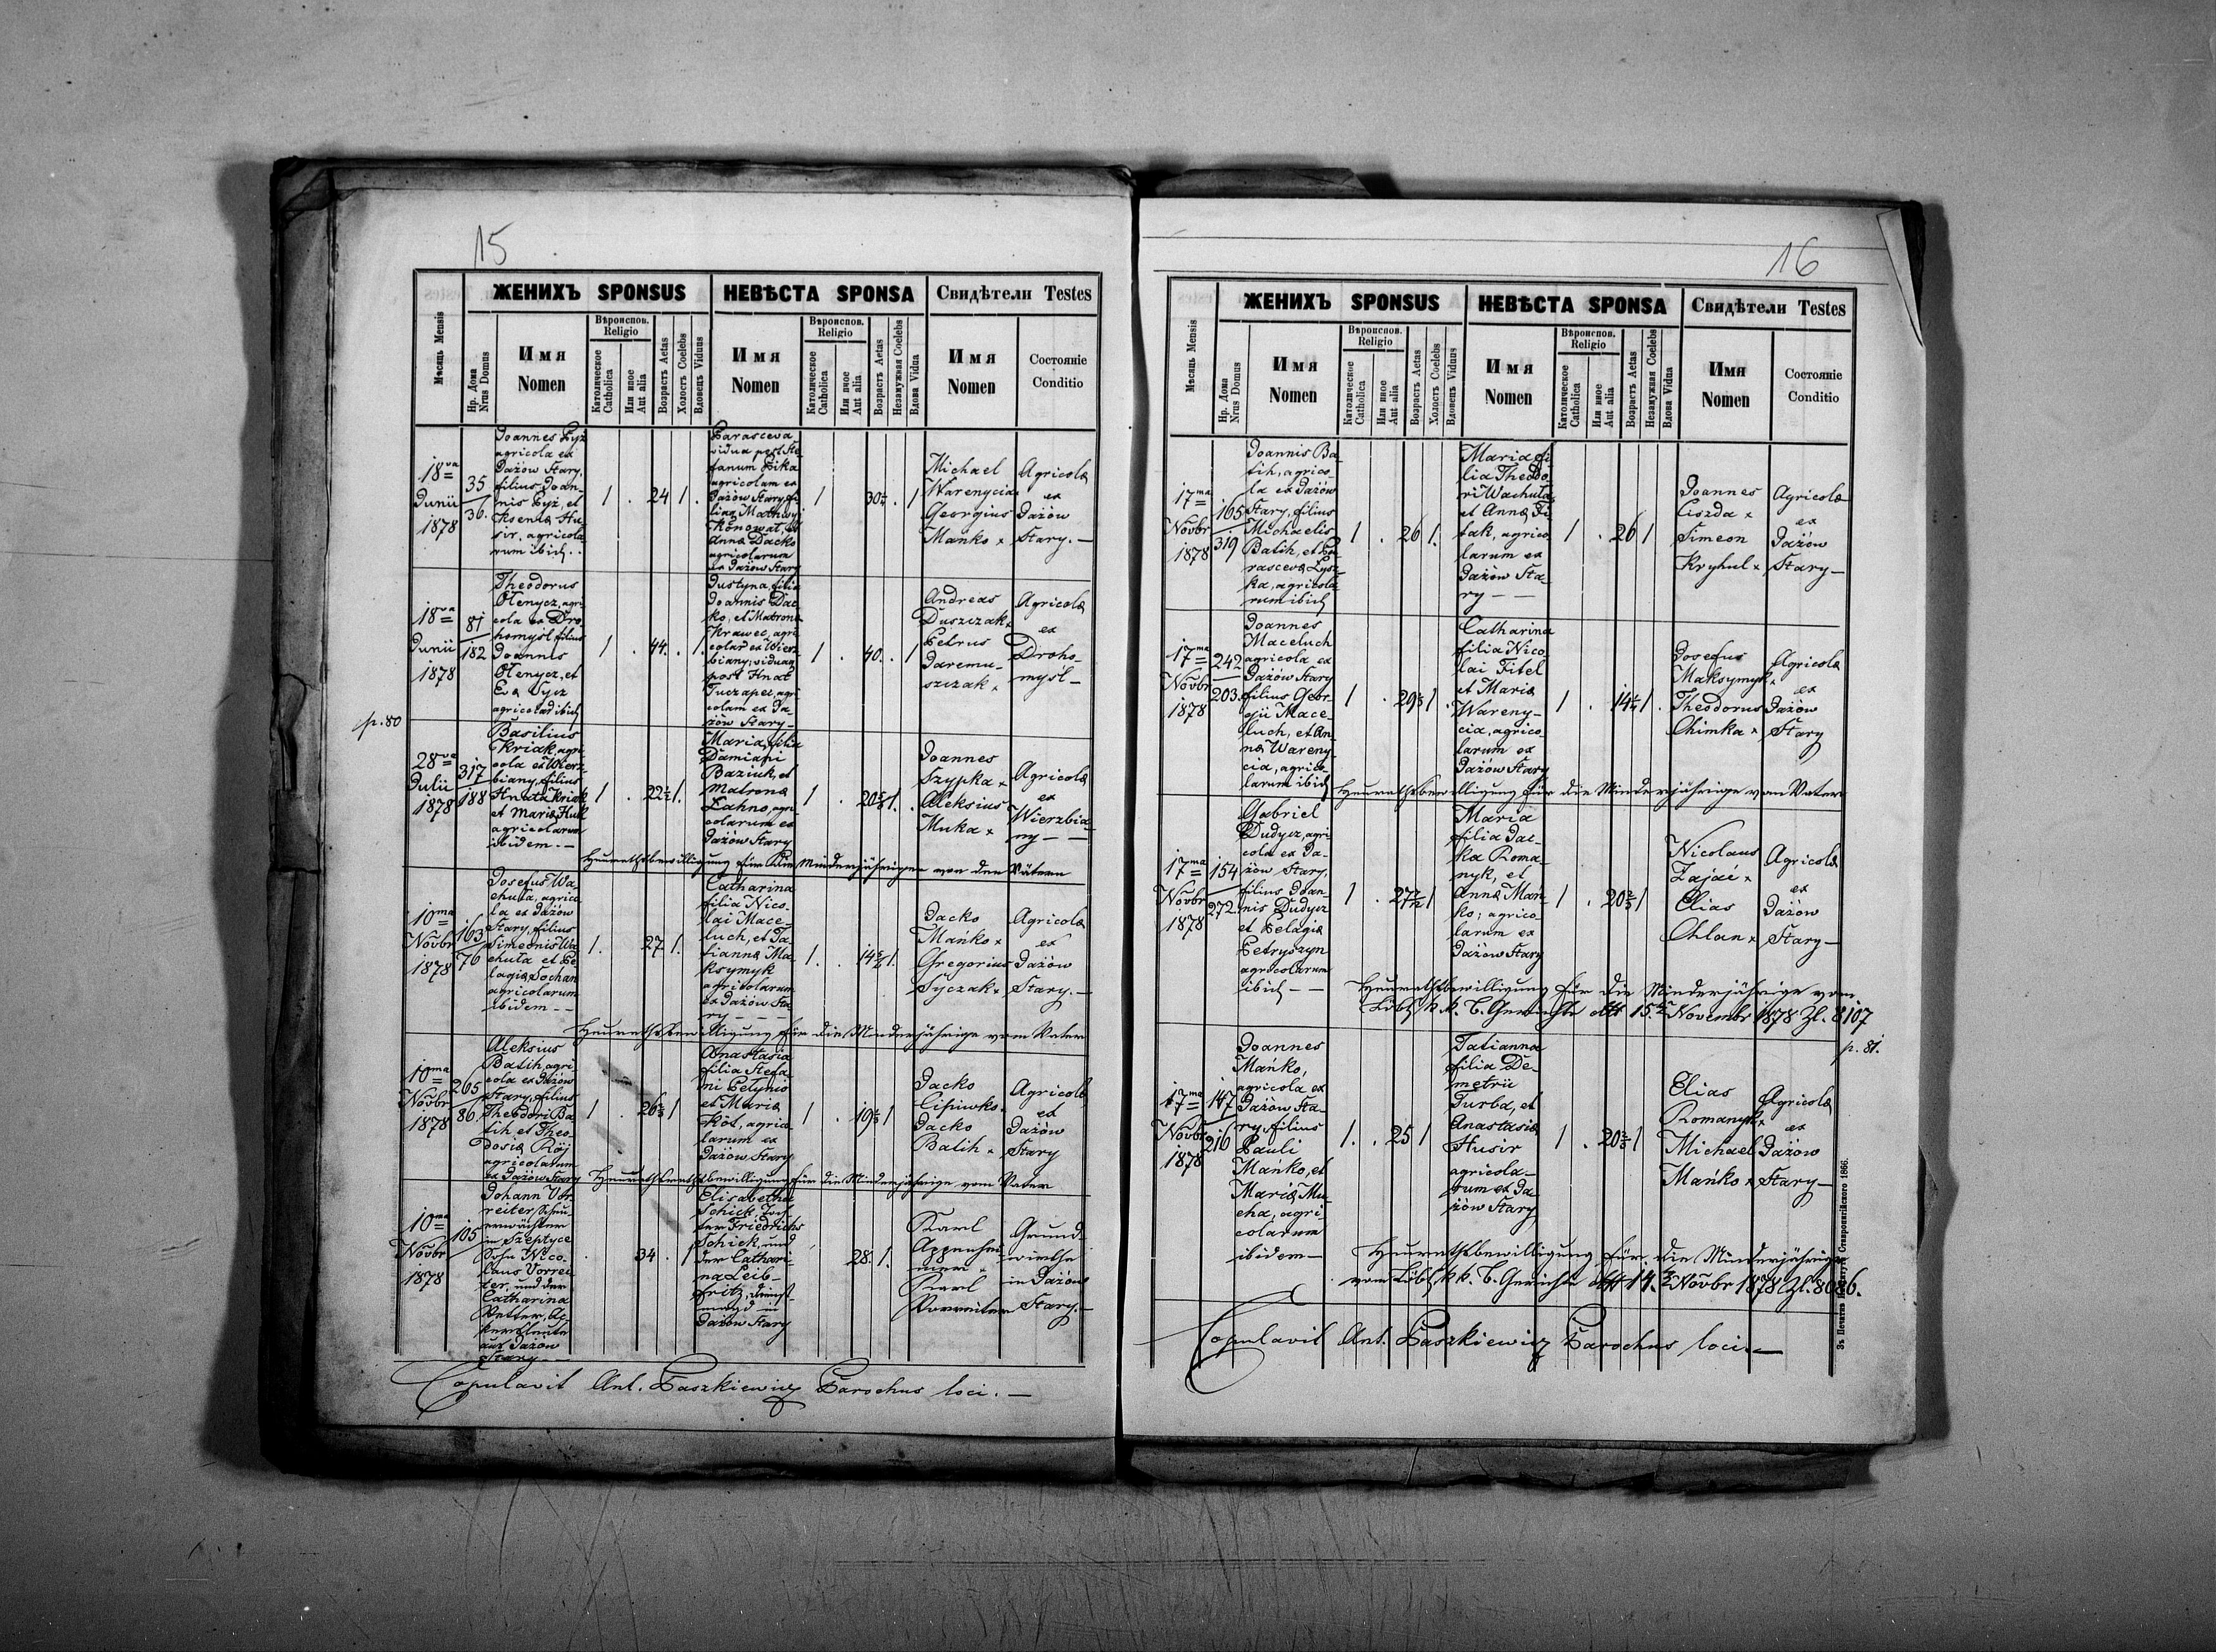 15
ЖЕНИХЪ SPONSUS
НЕВѢСТА SPONSA
Свидѣтели Testes
Мѣсяць Mensis
Нр. Дома
Nrus Domus
Имя
Nomen
Вѣроиспов.
Religio
Католическое
Catholica
Или иное
Aut alia
Возрастъ Aetas
Холостъ Coelebs
Вдовецъ Viduus
Имя
Nomen
Вѣроиспов.
Religio
Католическое
Catholica
Или иное
Aut alia
Возрастъ Aetas
Незамужная Coelebs
Вдова Vidua
Имя
Nomen
Состояніе
Conditio
18va
Junii
1878
35
36.
Joannes Pyż
agricola ex
Jażów Stary,
filius Joan-
nis Pyż, et
Ksenia Hu-
sir, agricola-
rum ibid..
1 . 24 1 .
Parasceva
vidua post Ste-
fanum Pika
agricolam ex
Jażów Stary, fi-
lia Mathwij
Konowat, et
Anna Dacko
agricolarum
ex Jażów Stary
1 30½ . 1
Michael
Warenycia
Georgius
Mańko ×
Agricola
ex
Jażów
Stary. —
18va
Junii
1878
81
182
Theodorus
Olenycz, agri-
cola ex Dro-
homysl filius
Joannis
Olenycz, et
Eva Tycz
agricolar ibid
1 . 44. . 1.
Justyna, filia
Joannis Dac-
ko, et Matrona
Krawec, agri-
colar ex Wierz-
biany, viduam
post Hnat
Tuczapec, agri-
colam ex Ja-
żów Stary —
1 . 40. . 1
Andreas
Duszczak ×
Petrus
Jaremu-
szczak ×
Agricola
ex
Droho-
mysl —
p. 80
28va
Julii
1878
317
188
Basilius
Kriak, agri-
cola ex Wierz-
biany, filius
Hnata Kriak
et Maria Huk
agricolarum
ibidem. —
1 . 22½ 1.
Maria, filia
Damiani
Baziuk, et
Matrona
Lahno, agri-
colarum ex
Jażów Stary
1 . 20 1.
Joannes
Szypka ×
Aleksius
Muka ×
Agricola
ex
Wierzbia-
ny — —
Heurathsbewilligung für Minderjährigen von den Vätern
10ma
Novbr
1878
163
76
Josefus Wa-
chuła, agrico-
la ex Jażów
Stary, filius
Simeonis Wa-
chuła et Pe-
lagia Sochan
agricolarum
ibidem — —
1. 27 1.
Catharina
filia Nico-
lai Mace-
luch, et Ta-
tianna Ma-
ksymyk
agricolarum
ex Jażów Sta-
ry — — —
1. . 14 1.
Jacko
Mańko ×
Gregorius
Tyczak ×
Agricola
ex
Jażów
Stary. —
Heurathsbewilligung für die Minderjährige vom Vater
10ma
Novbr
1878
265
86.
Aleksius
Batih, agri-
cola ex Jażów
Stary, filius
Theodori Ba-
tih et Theo-
dosia Rój
agricolarum
ex Jażów Stary
1 . 26 1
Anastasia
filia Stefa-
ni Petynio
et Maria
Köt, agrico-
larum ex
Jażów Stary
1 . 19 1
Jacko
Lipiwko.
Jacko
Batih ×
Agricola
ex
Jażów
Stary
Heurathsbewilligung für die Minderjährige vom Vater
10ma
Novbr
1878
105
Johann Vor-
reiter,
in Szeptyce
Sohn Nico-
laus Vorrei-
ter, und der
Catharina
Retter, Ac-
kersleute
aus Jażów
Stary —
34 . 1
Elisabetha
Schick, Toch-
ter Friedrichs
Schick, und
der Cathari-
na Leib-
fritz, dienst-
magd in
Jażów Stary
28. 1.
Karl
Appenhei-
mer ×
Karl
Vorreiter
Grund-
wirthe
in Jażów
Stary. —
Copulavit Ant. Paszkiewicz Parochus loci. —
16
ЖЕНИХЪ SPONSUS
НЕВѢСТА SPONSA
Свидѣтели Testes
Мѣсяць Mensis
Нр. Дома
Nrus Domus
Имя
Nomen
Вѣроиспов.
Religio
Католическое
Catholica
Или иное
Aut alia
Возрастъ Aetas
Холостъ Coelebs
Вдовецъ Viduus
Имя
Nomen
Вѣроиспов.
Religio
Католическое
Catholica
Или иное
Aut alia
Возрастъ Aetas
Незамужная Coelebs
Вдова Vidua
Имя
Nomen
Состояніе
Conditio
17ma
Novbr
1878
165
319
Joannis Ba-
tih, agrico-
la ex Jażów
Stary, filius
Michaelis
Batih, et Pa-
rasceva Łysz-
ka, agricola-
rum ibid
1 . 26 1.
Maria fi-
lia Theodo-
ri Wachuła
et Anna Ti-
tak, agrico-
larum ex
Jażów Sta-
ry — —
1 . 26 1
Joannes
Liszda ×
Simeon
Kryhul ×
Agricola
ex
Jażów
Stary —
17ma
Novbr
1878
242
203.
Joannes
Maceluch
agricola ex
Jażów Stary
filius Geor-
gii Mace-
luch, et An-
na Wareny-
cia, agrico-
larum ibid
1 . 29 1 .
Catharina
filia Nico-
lai Titel
et Maria
Wareny-
cia, agrico-
larum ex
Jażów Stary
1 . 14 1 .
Josefus
Maksymyk ×
Theodorus
Chimka ×
Agricola
ex
Jażów
Stary
Heurathsbewilligung für die Minderjährige vom Vater
17ma
Novbr
1878
154
272
Gabriel
Dudycz, agri-
cola ex Ja-
żów Stary,
filius Joan-
nis Dudycz
et Pelagia
Petryszyn
agricolarum
ibid — —
1 . 27 1
Maria
filia Jac-
ka Roma-
nyk, et
Anna Mań-
ko, agrico-
larum ex
Jażów Stary
1 . 20 1
Nicolaus
Zajac ×
Elias
Chlan ×
Agricola
ex
Jażów
Stary —
Heurathsbewilligung für die Minderjährige vom
Löbl. k. k. B. Gerichte dtt 15. Novembr 1878 Zl. 8107
p. 81.
17ma
Novbr
1878
147
216
Joannes
Mańko,
agricola ex
Jażów Sta-
ry, filius
Pauli
Mańko, et
Maria Mu-
cha, agri-
colarum
ibidem —
1. . 25 1
Tatianna
filia De-
metrii
Turba, et
Anastasia
Husir
agricola-
rum ex Ja-
żów Stary
1 . 20 1
Elias
Romanyk ×
Michael
Mańko ×
Agricola
ex
Jażów
Stary —
Heurathsbewilligung für die Minderjährige
vom Löbl. k. k. B. Gerichte dtt 14. Novbr 1878 Zl. 8086.
Copulavit Ant. Paszkiewicz Parochus loci. —
Ставропигійского 1866.